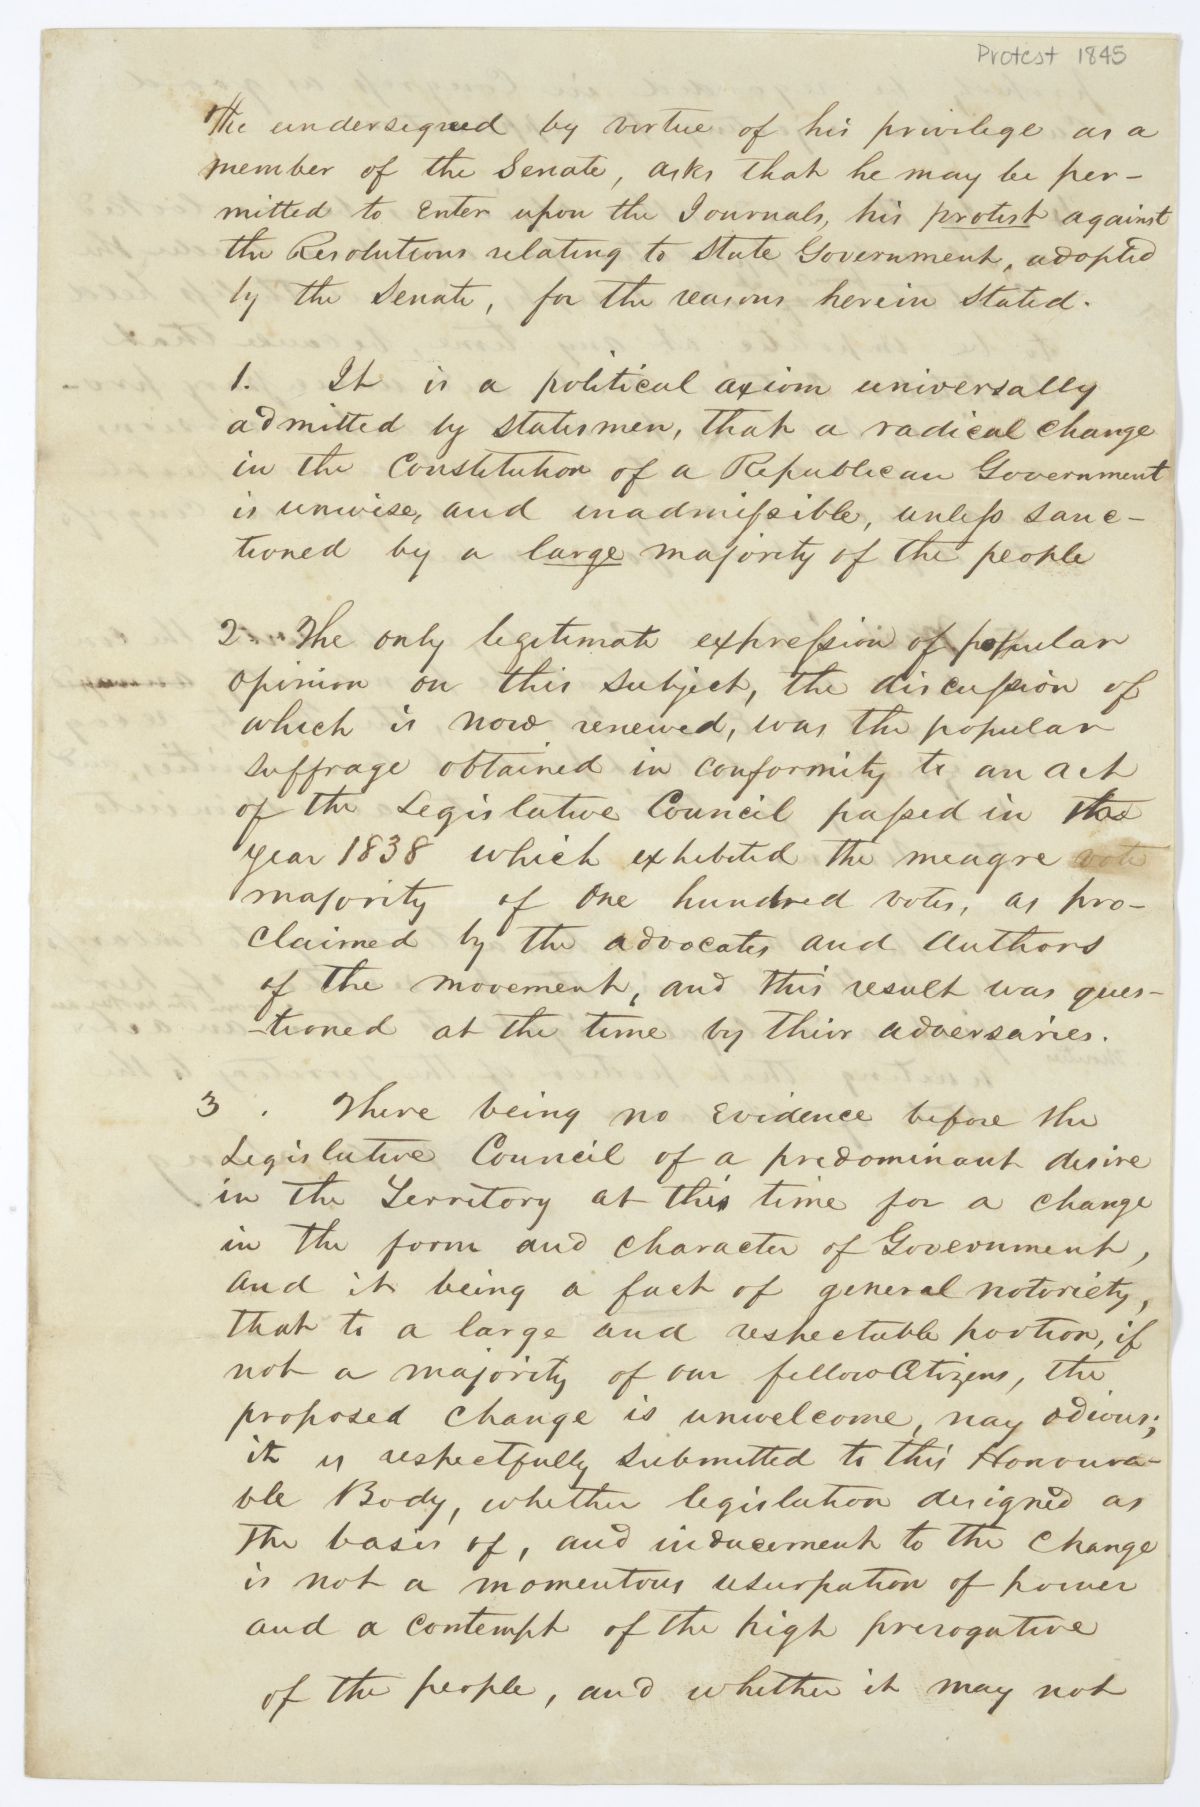 Protest 1845
The undersigned by virtue of his privilege as a
member of the Senate, asks that he may be per-
mitted to enter upon the Journals, his protest against
the Resolutions relating to State Government, adopted
by the Senate, for the reasons herein stated.
1. It is a political axiom universally
admitted by statesmen, that a radical change
in the Constitution of a Republican Government
is unwise, and inadmissible, unless sanc-
tioned by a large majority of the people
2. The only legitimate expression of popular
opinion on this subject, the discussion of
which is now renewed, was the popular
suffrage obtained in conformity to an act
of the Legislative Council passed in the
year 1838 which exhibited the meagre vote
majority of one hundred votes, as pro-
claimed by the advocates and authors
of the movement, and this result was ques-
-tioned at the time by thier adversaries.
3. There being no evidence before the
Legislative Council of a predominant desire
in the Territory at this time for a change
in the form and character of Government,
and it being a fact of general notoriety,
that to a large and respectable portion, if
not a majority of our fellow Citizens, the
proposed change is unwelcome, nay odious;
it is respectfully submitted to this Honoura-
ble Body, whether legislation designed as
the basis of, and inducement to the change
is not a momentous usurpation of power
and a contempt of the high prerogative
of the people, and whether it may not